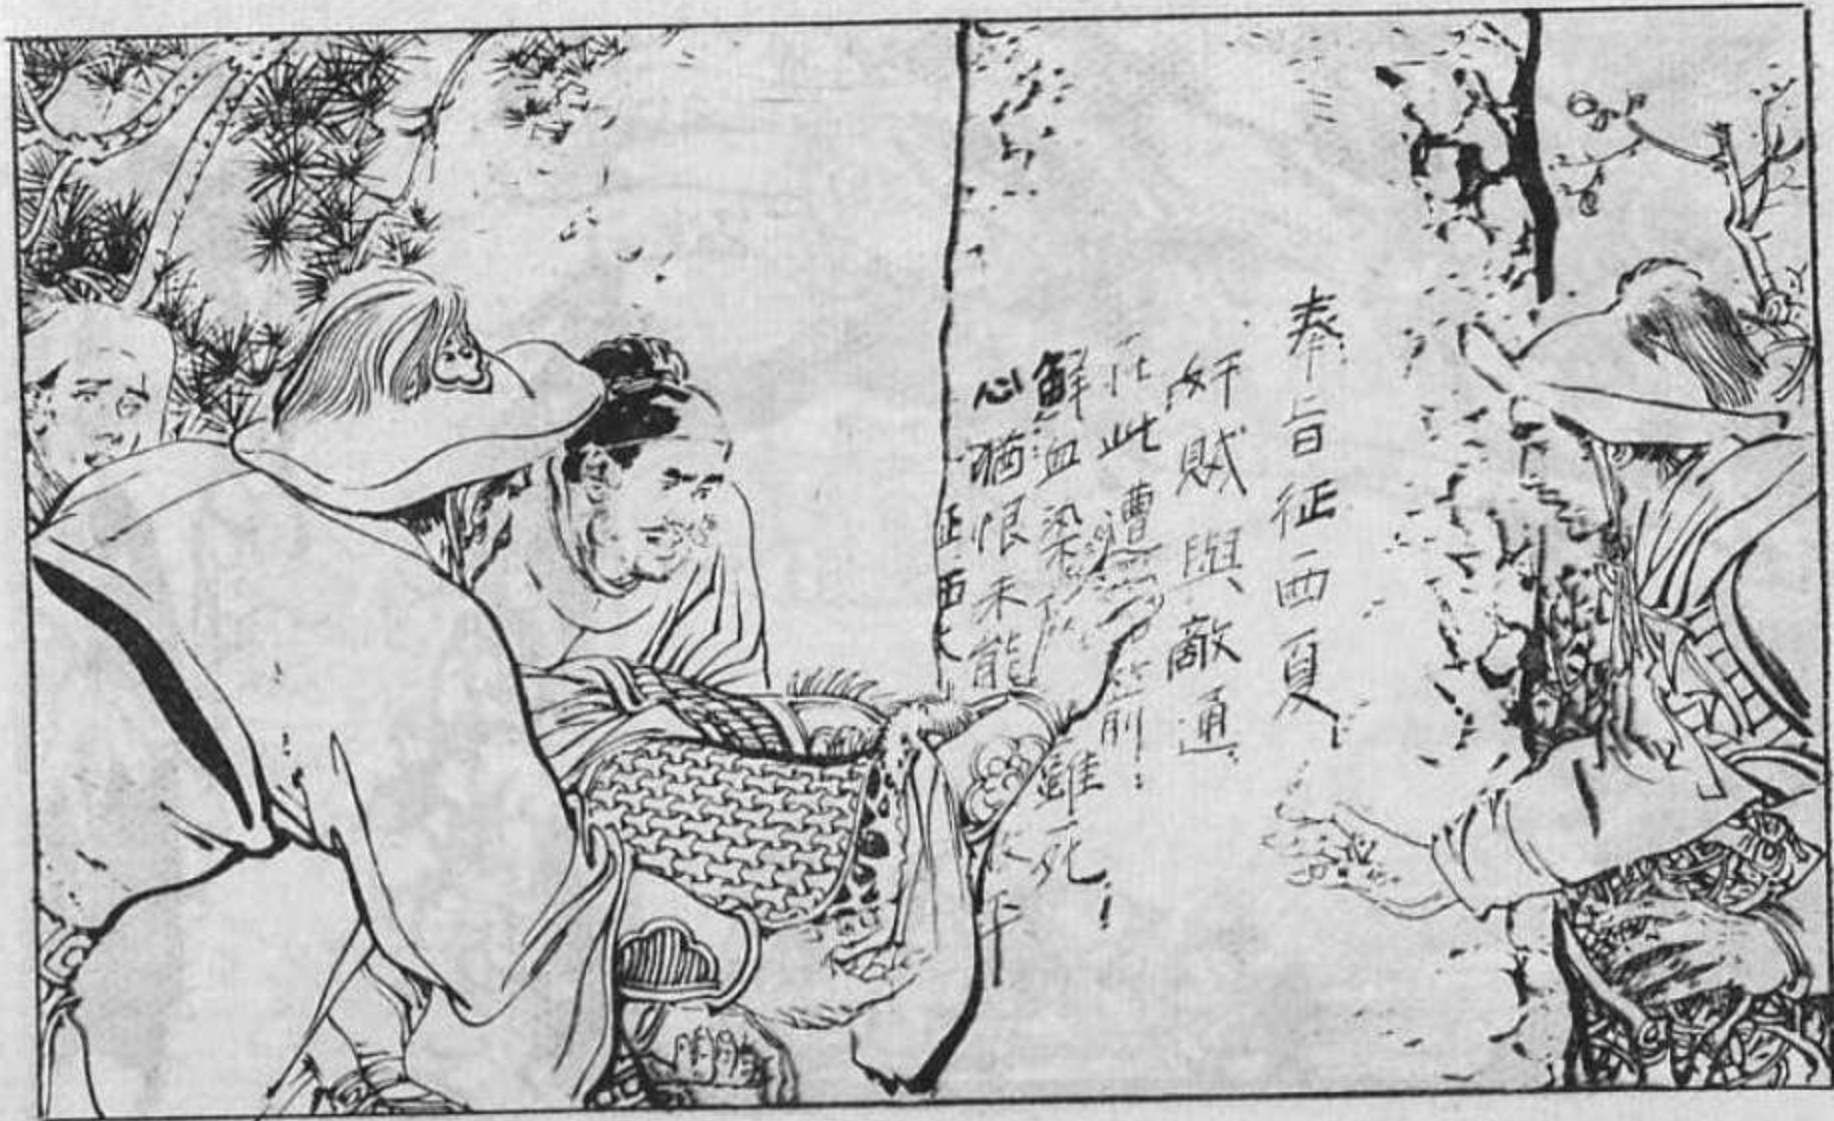 奉旨征西夏，
奸賊與敵通。
在此遭 箭：
鮮血染 雖死！
心猶恨未能
征西 下